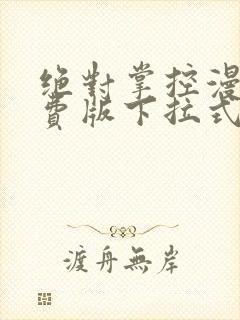 绝對掌控漫
費版下拉式
渡舟無岸